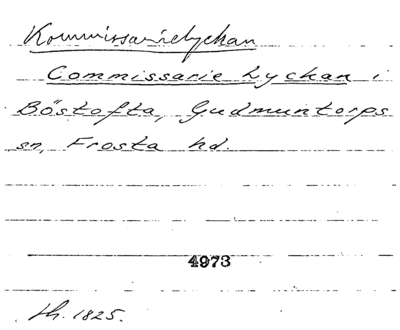 Kommissarielyckan
Commissarie Lyckan i
Böstofta, Gudmuntorps
sn, Frosta hd.
4973
h. 1825.